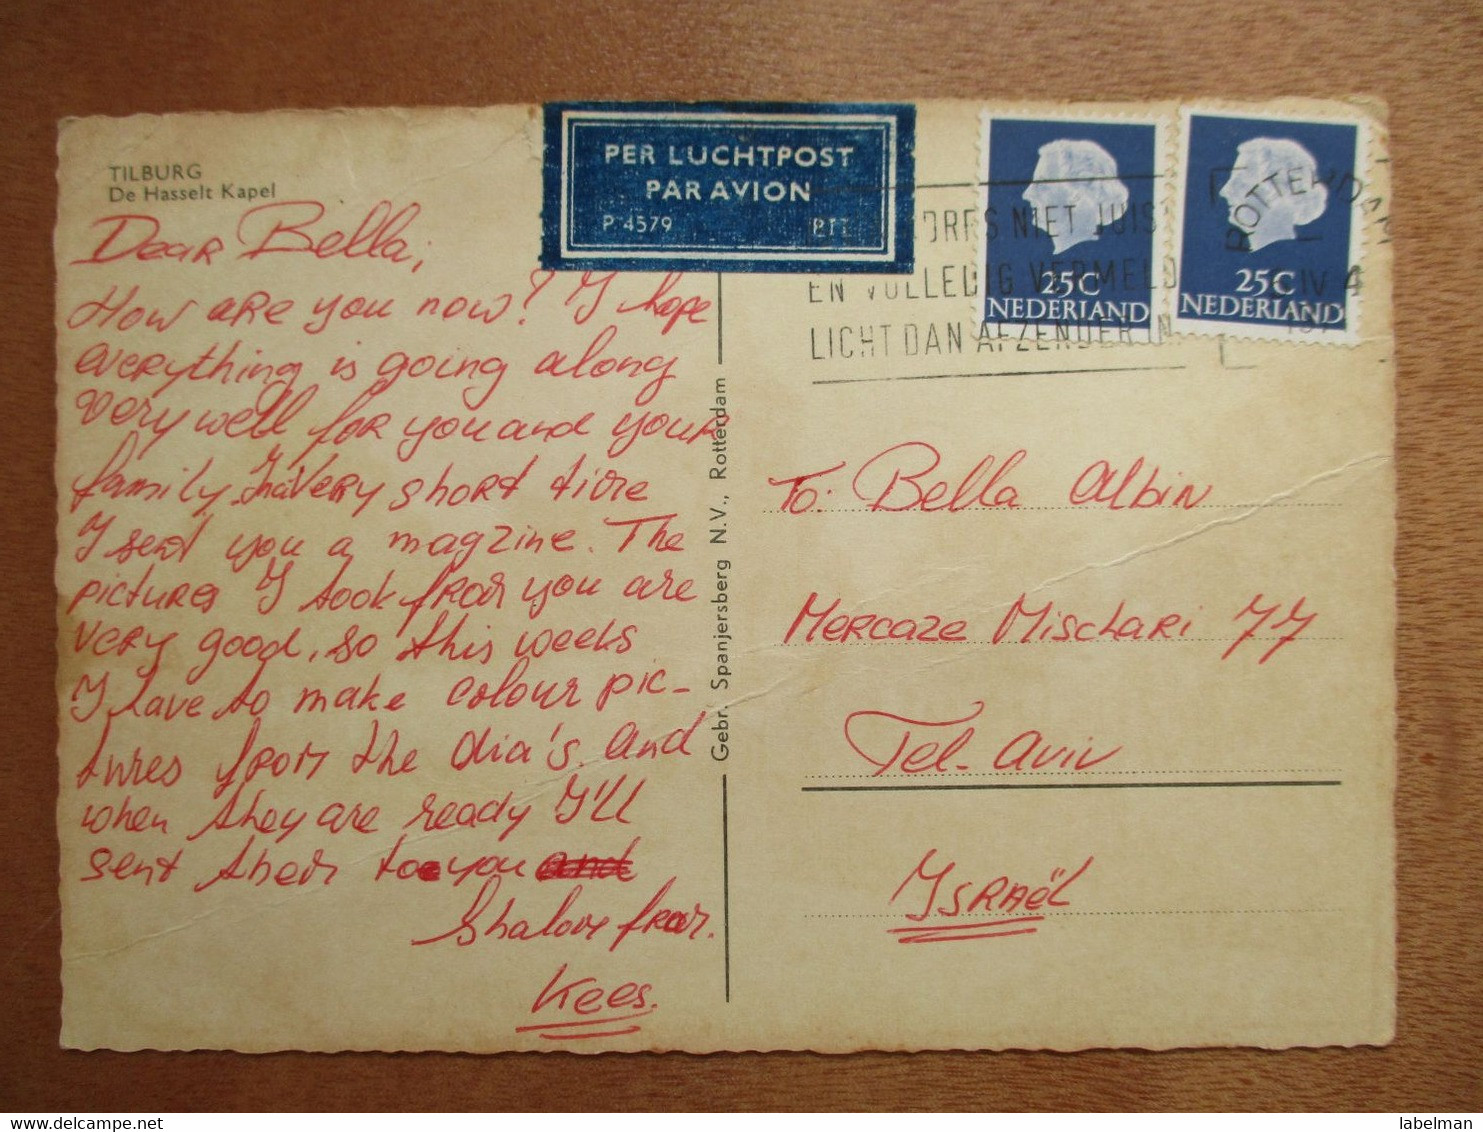 TILBURG
De Hasselt Kapel
Dear Bella,
How are you now? I hope
everything is going along
very well for you and your
family. In a very short time
I sent you a magzine. The
pictures I took from you are
very good, so this weeks
I have to make colour pic-
tures from the dia's. And
when they are ready I'll
sent them to you and
Shalom from.
Kees.
PER LUCHTPOST
PAR AVION
P 4579 PTT
Gebr. Spanjersberg N.V., Rotterdam
25C
NEDERLAND
25C
NEDERLAND
ROTTERDAM
IV 4
NIET JUIST
EN VOLLEDIG VERMELD
LICHT DAN AFZENDER IN
To: Bella Albin
Mercaze Mischari 77
Tel-Aviv
Israël
labelman
www.delcampe.net